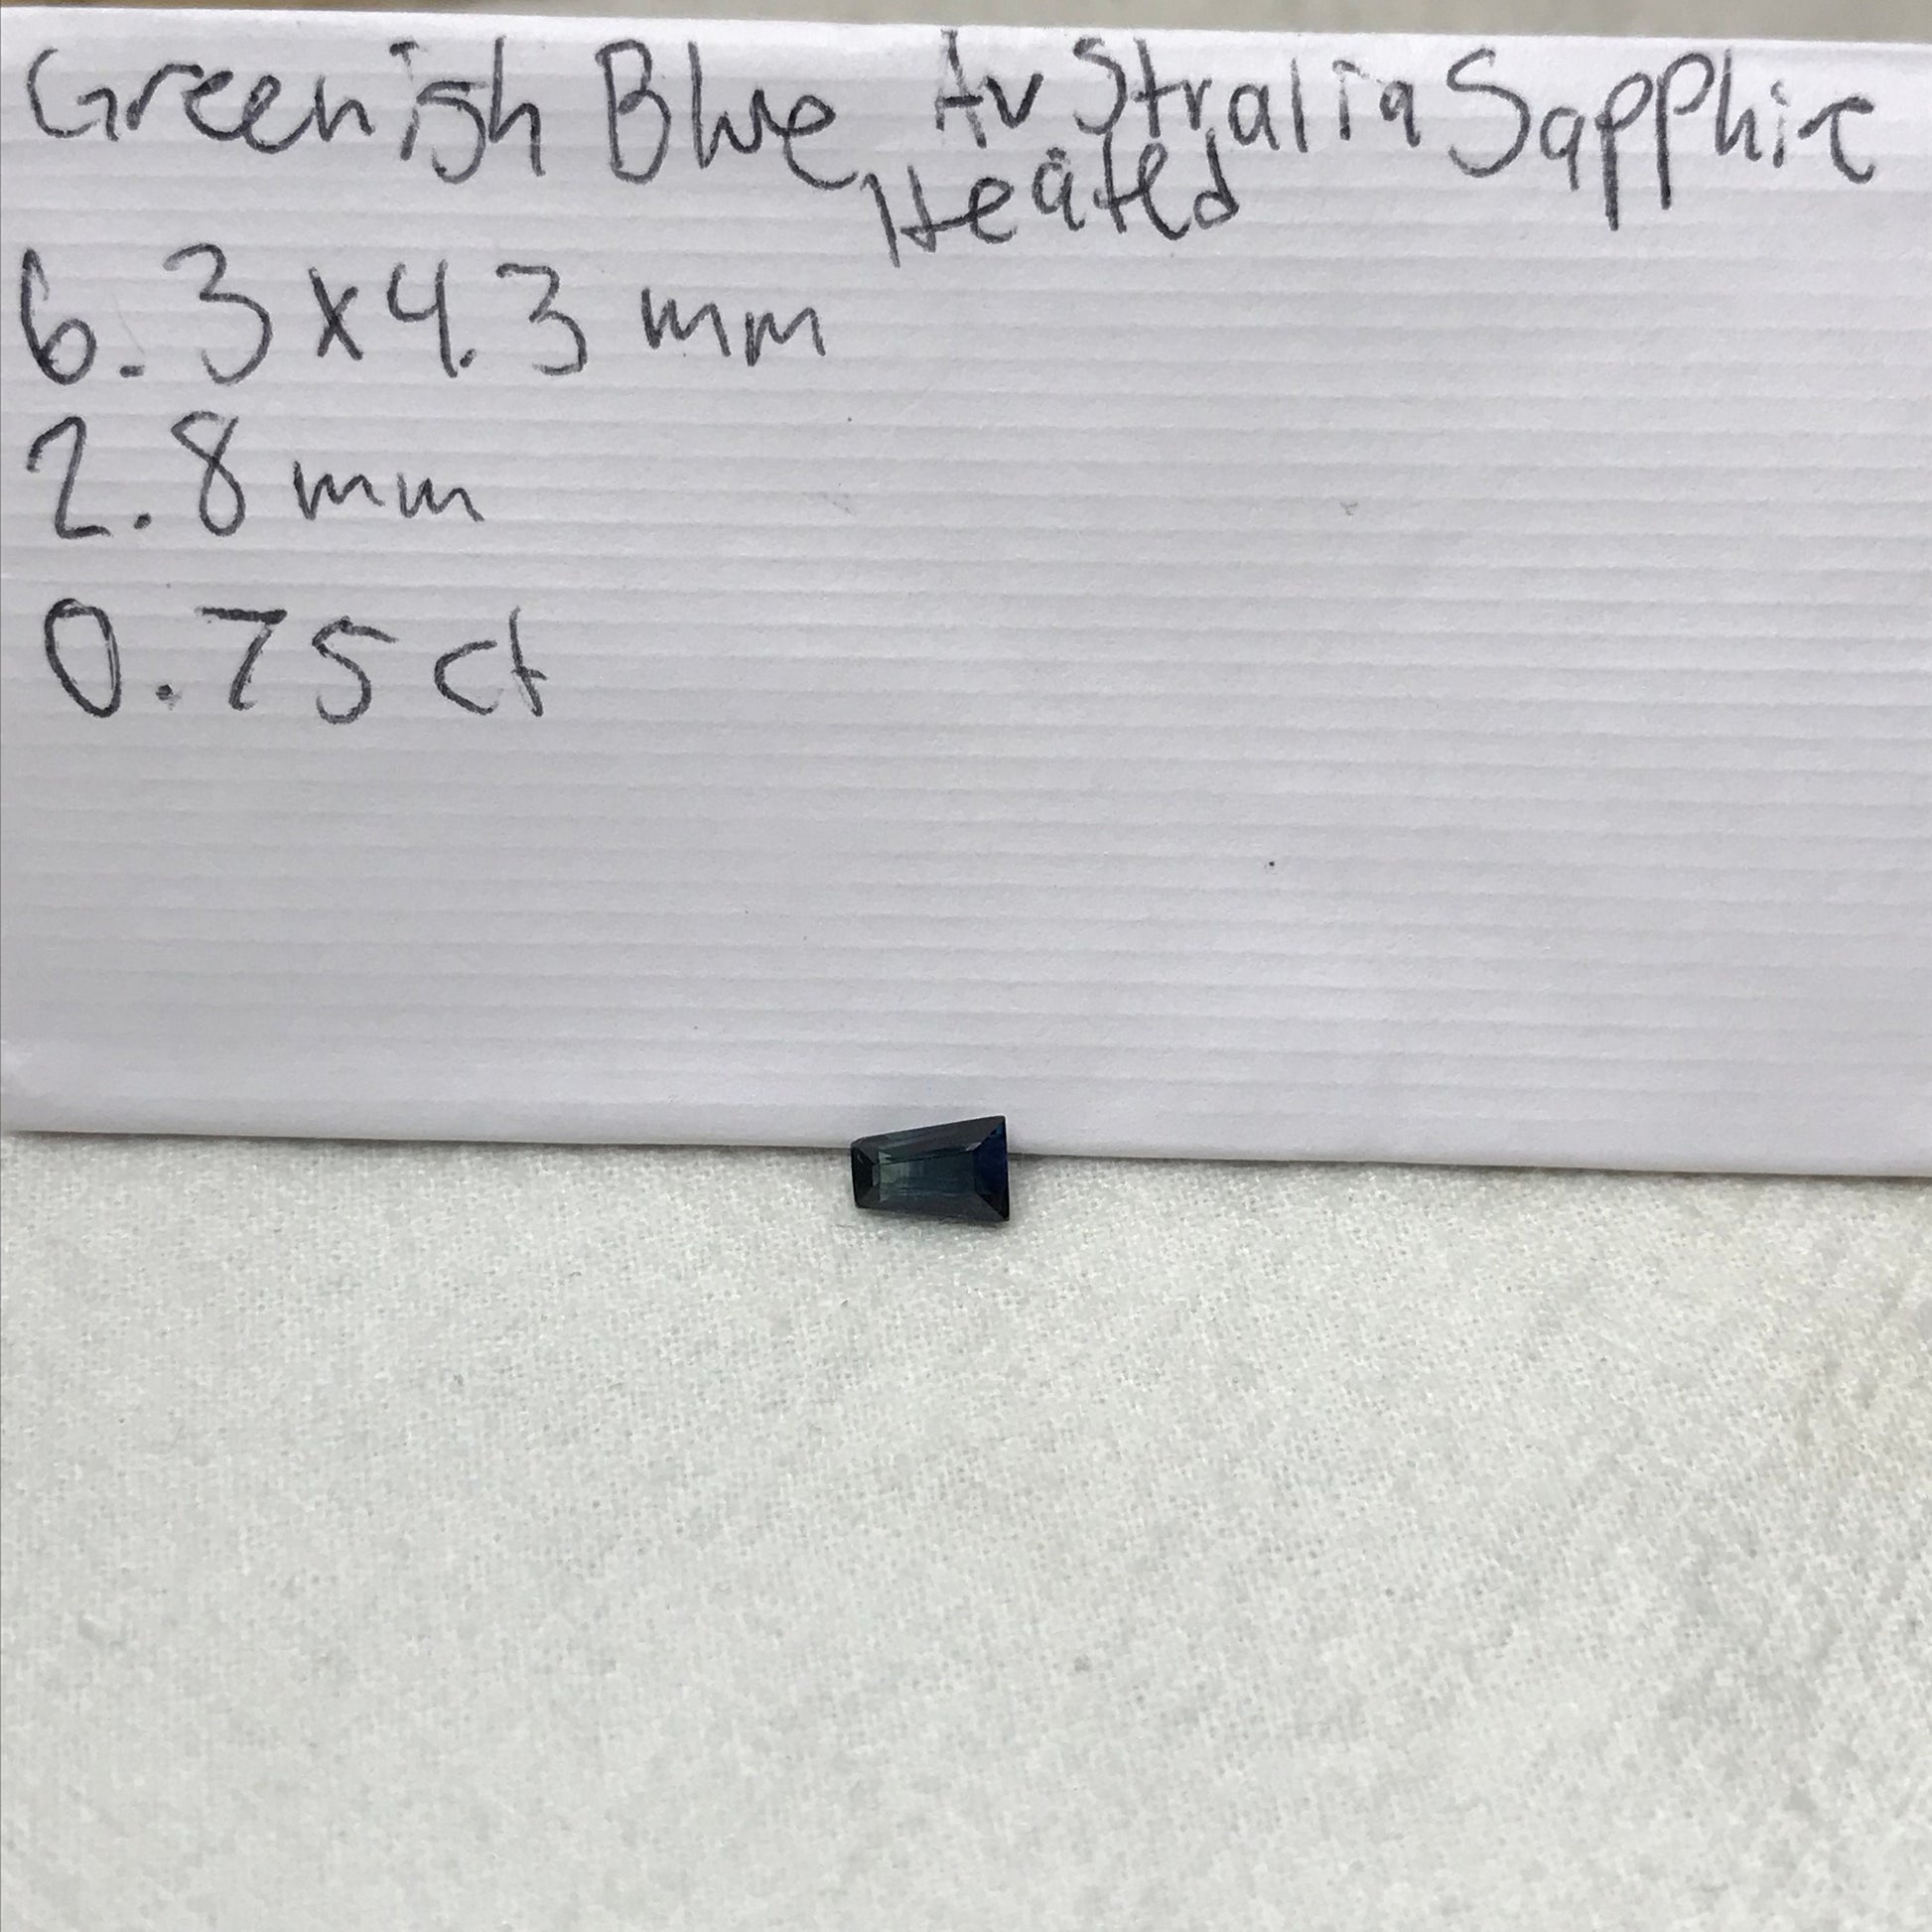 Greenish Blue Australia Sapphire
Heated
6.3x4.3 mm
2.8 mm
0.75 ct